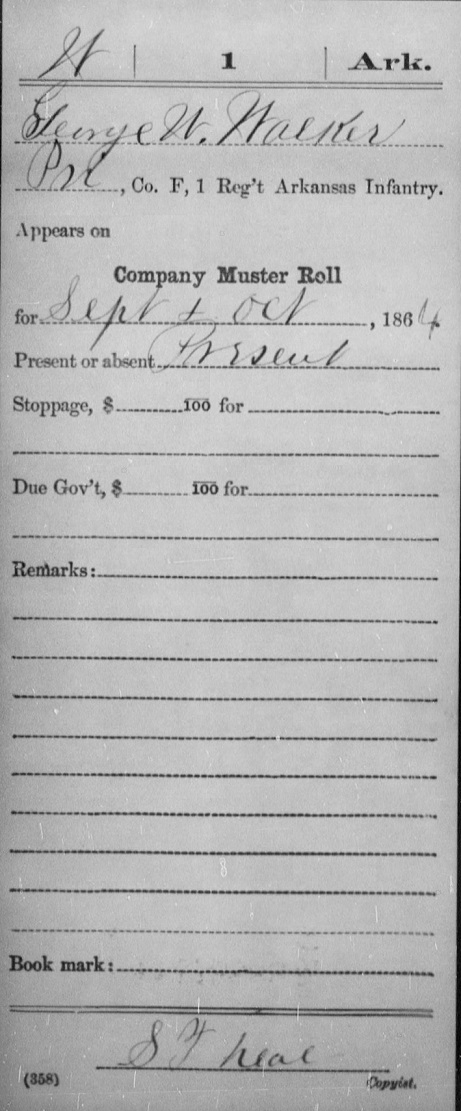 W | 1 | Ark.
George W. Walker
Pvt, Co. F, 1 Reg't Arkansas Infantry.
Appears on
Company Muster Roll
for Sept & Oct, 1864
Present or absent Present
Stoppage, $ 100 for
Due Gov't, $ 100 for
Remarks:
Book mark:
S T Neal
(358) Copyist.